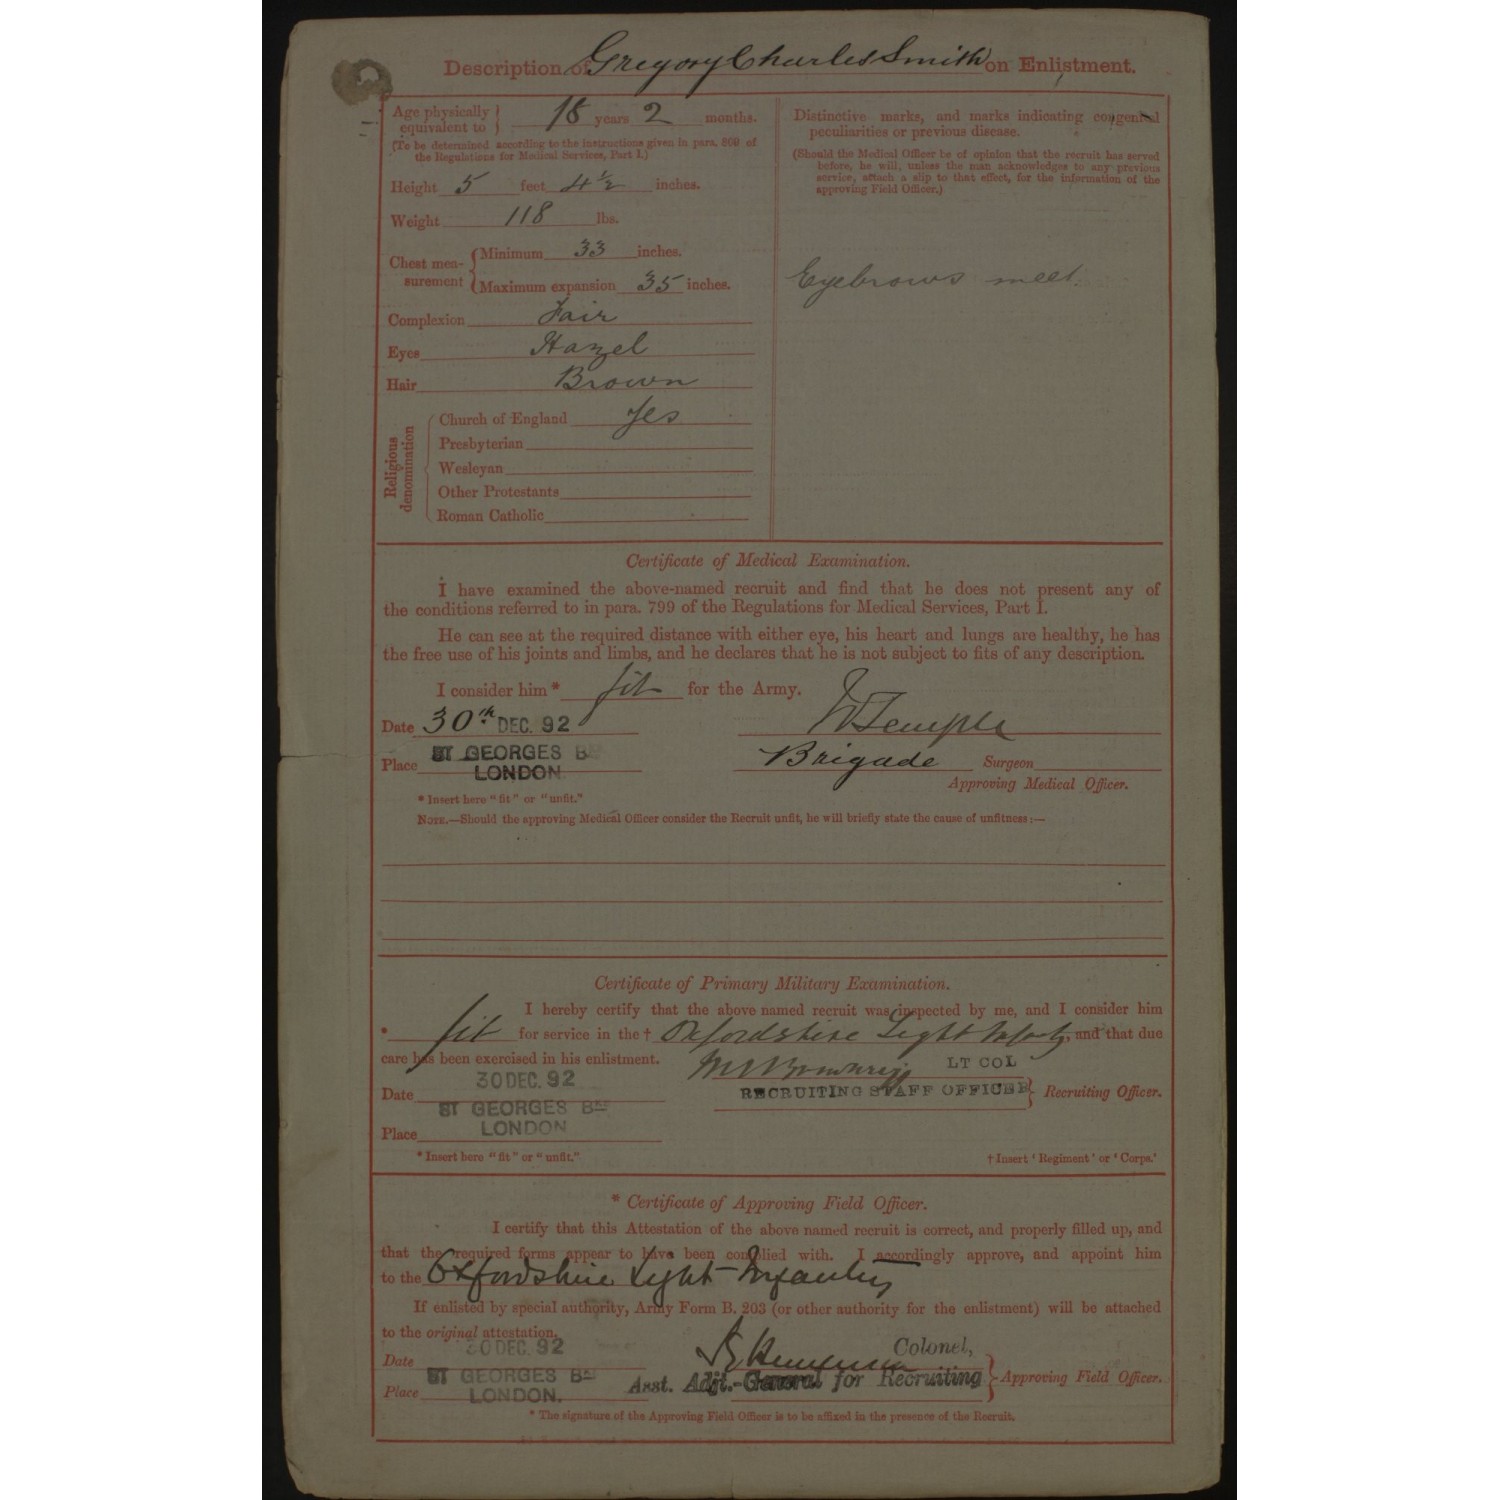 Description of Gregory Charles Smith on Enlistment.
Age physically equivalent to } 18 years 2 months.
(To be determined according to the instructions given in para. 809 of
the Regulations for Medical Services, Part I.)
Height 5 feet 4½ inches.
Weight 118 lbs.
Chest measurement { Minimum 33 inches.
Maximum expansion 35 inches.
Complexion Fair
Eyes Hazel
Hair Brown
Religious denomination
Church of England Yes
Presbyterian
Wesleyan
Other Protestants
Roman Catholic
Distinctive marks, and marks indicating congenital
peculiarities or previous disease.
(Should the Medical Officer be of opinion that the recruit has served
before, he will, unless the man acknowledges to any previous
service, attach a slip to that effect, for the information of the
approving Field Officer.)
Eyebrows meet.
Certificate of Medical Examination.
I have examined the above-named recruit and find that he does not present any of
the conditions referred to in para. 799 of the Regulations for Medical Services, Part I.
He can see at the required distance with either eye, his heart and lungs are healthy, he has
the free use of his joints and limbs, and he declares that he is not subject to fits of any description.
I consider him * fit for the Army.
Date 30th DEC. 92
Temple
Place ST GEORGES BKS
LONDON
Brigade Surgeon
Approving Medical Officer.
* Insert here "fit" or "unfit."
NOTE.—Should the approving Medical Officer consider the Recruit unfit, he will briefly state the cause of unfitness:—
Certificate of Primary Military Examination.
I hereby certify that the above named recruit was inspected by me, and I consider him
* fit for service in the † Oxfordshire Light Infantry, and that due
care has been exercised in his enlistment.
LT COL
Date 30 DEC. 92
RECRUITING STAFF OFFICER } Recruiting Officer.
Place ST GEORGES BKS
LONDON
* Insert here "fit" or "unfit."
† Insert 'Regiment' or 'Corps.'
* Certificate of Approving Field Officer.
I certify that this Attestation of the above named recruit is correct, and properly filled up, and
that the required forms appear to have been complied with. I accordingly approve, and appoint him
to the Oxfordshire Light Infantry
If enlisted by special authority, Army Form B. 203 (or other authority for the enlistment) will be attached
to the original attestation.
Date 30 DEC. 92
Colonel,
Place ST GEORGES BKS
LONDON.
Asst. Adjt.-General for Recruiting } Approving Field Officer.
* The signature of the Approving Field Officer is to be affixed in the presence of the Recruit.